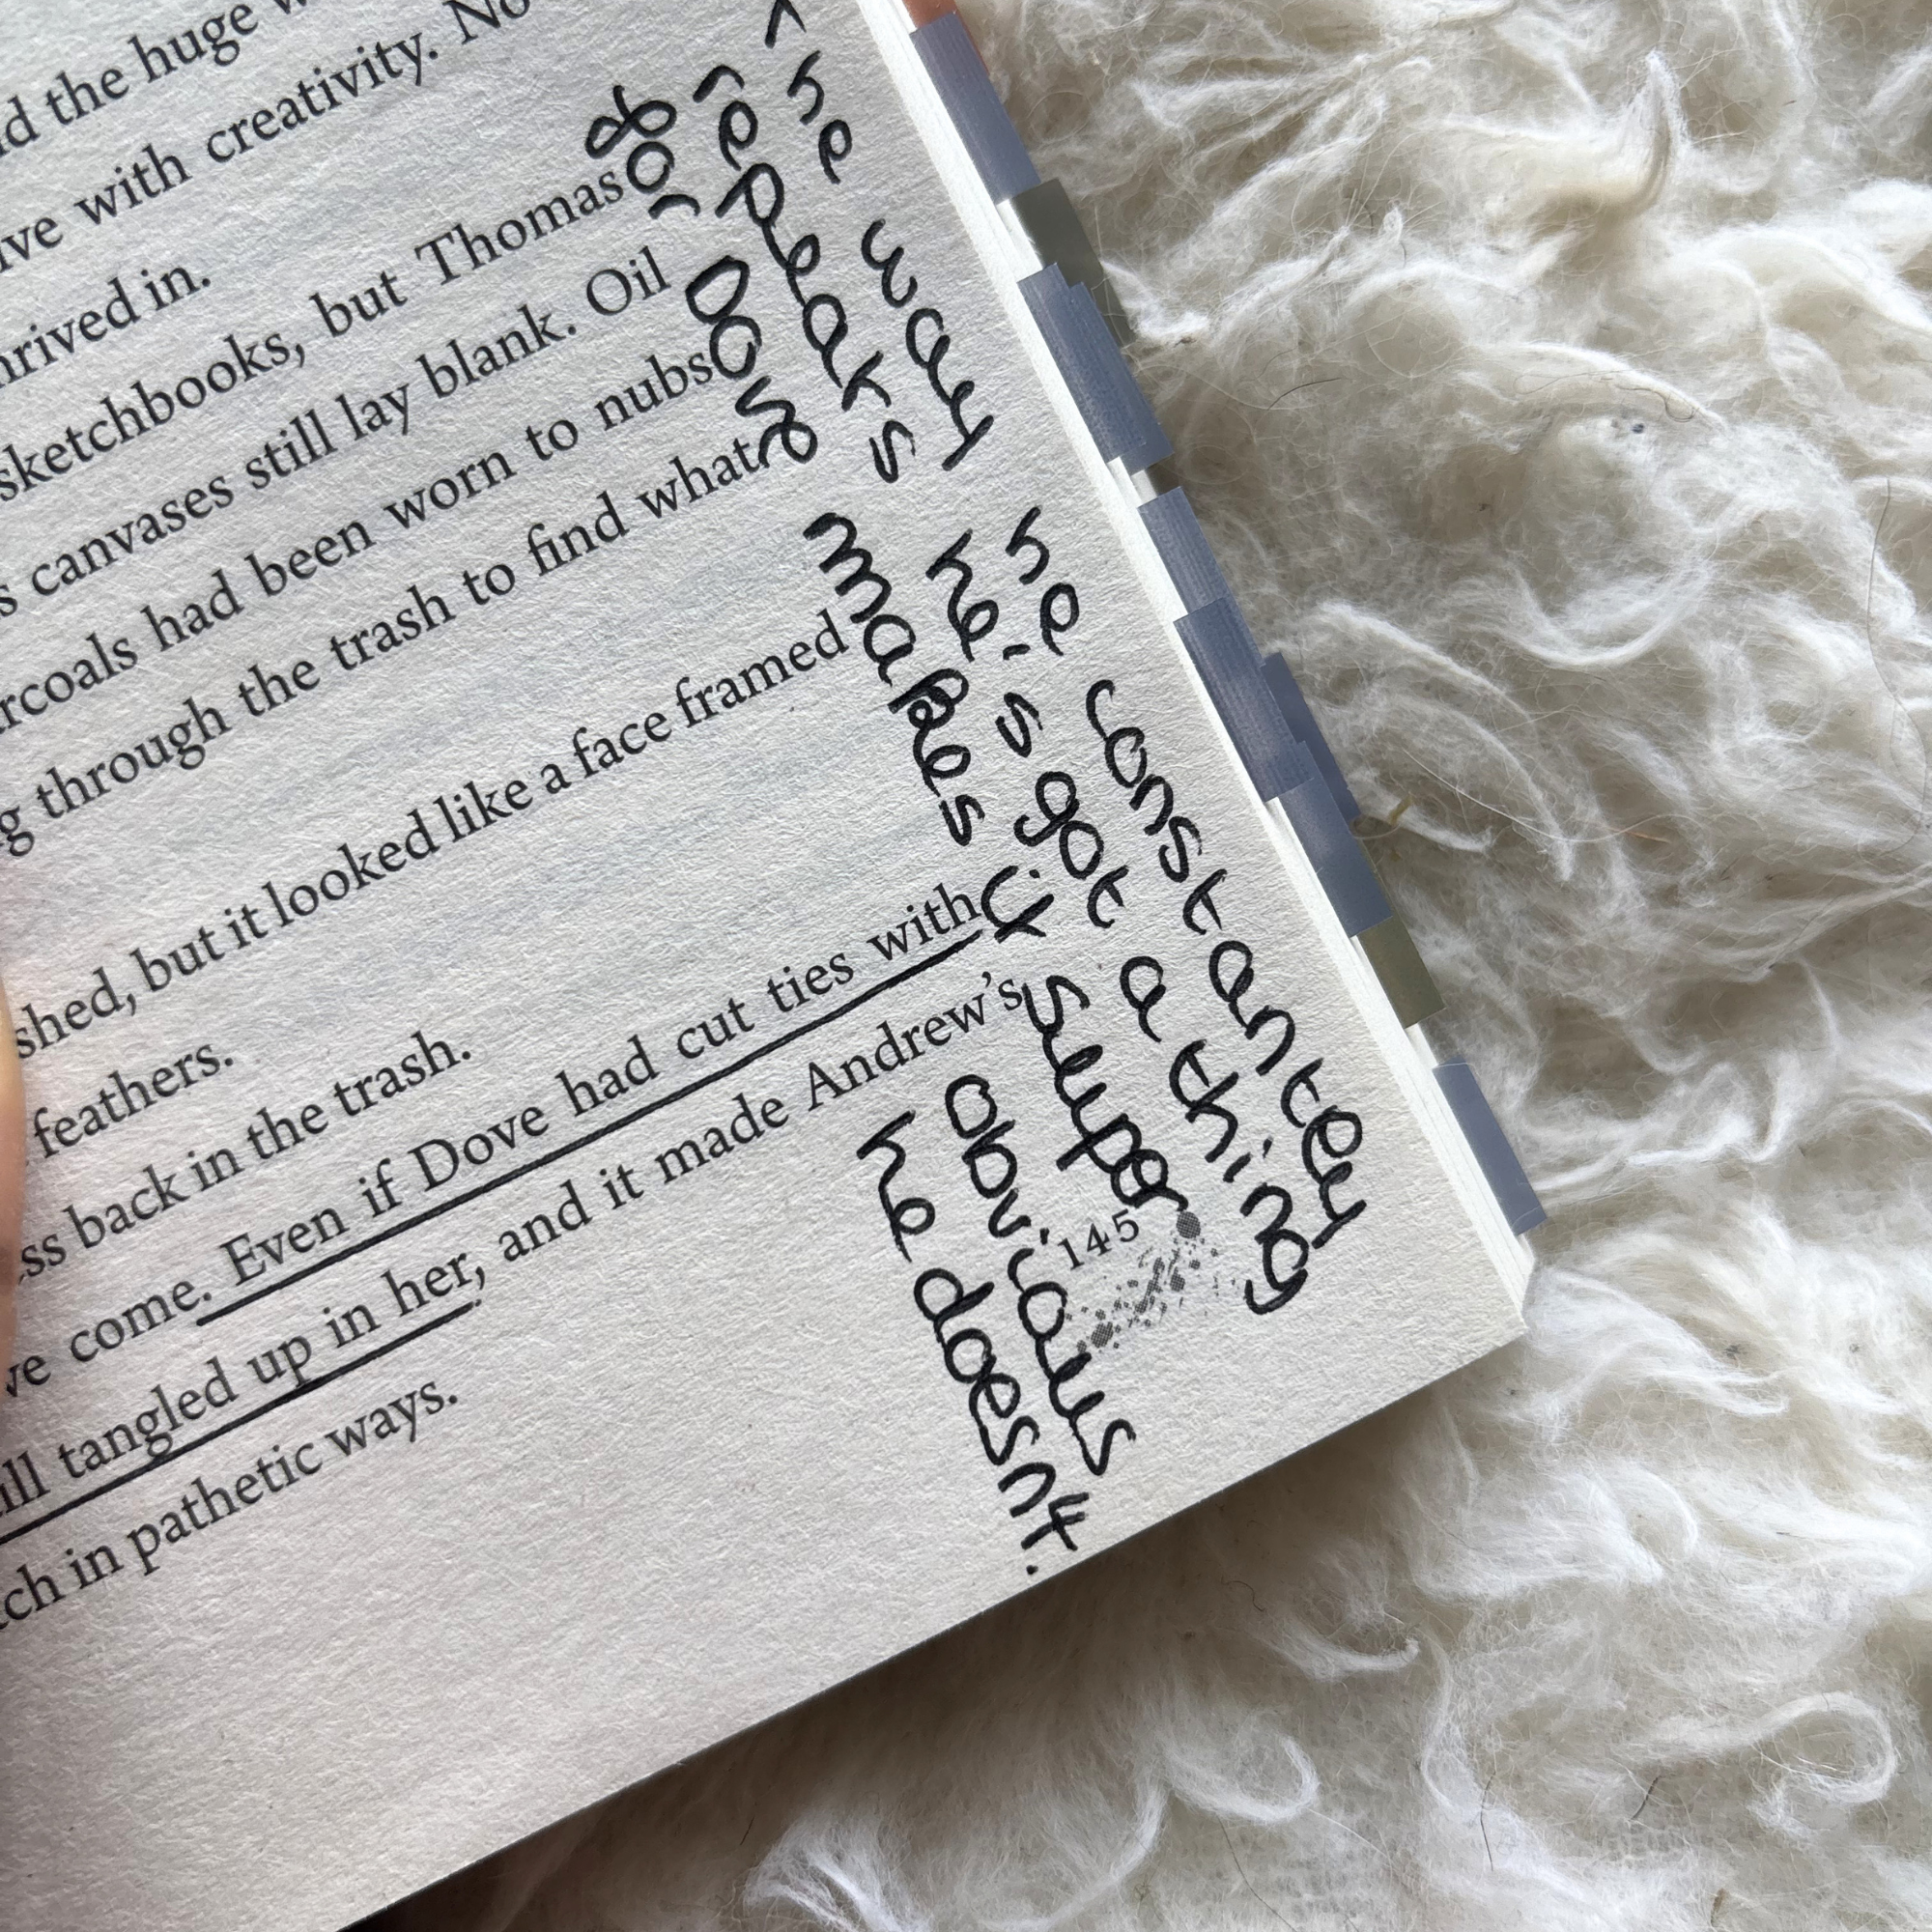 d the huge
ve with creativity. No
hrived in.
sketchbooks, but Thomas
s canvases still lay blank. Oil
rcoals had been worn to nubs
g through the trash to find what
shed, but it looked like a face framed
feathers.
ss back in the trash.
ve come. Even if Dove had cut ties with
ill tangled up in her, and it made Andrew's
tch in pathetic ways.
145
^ he way he constantey
repeaks he's got a thing
for Dove makes it super
obvious
he doesnt.